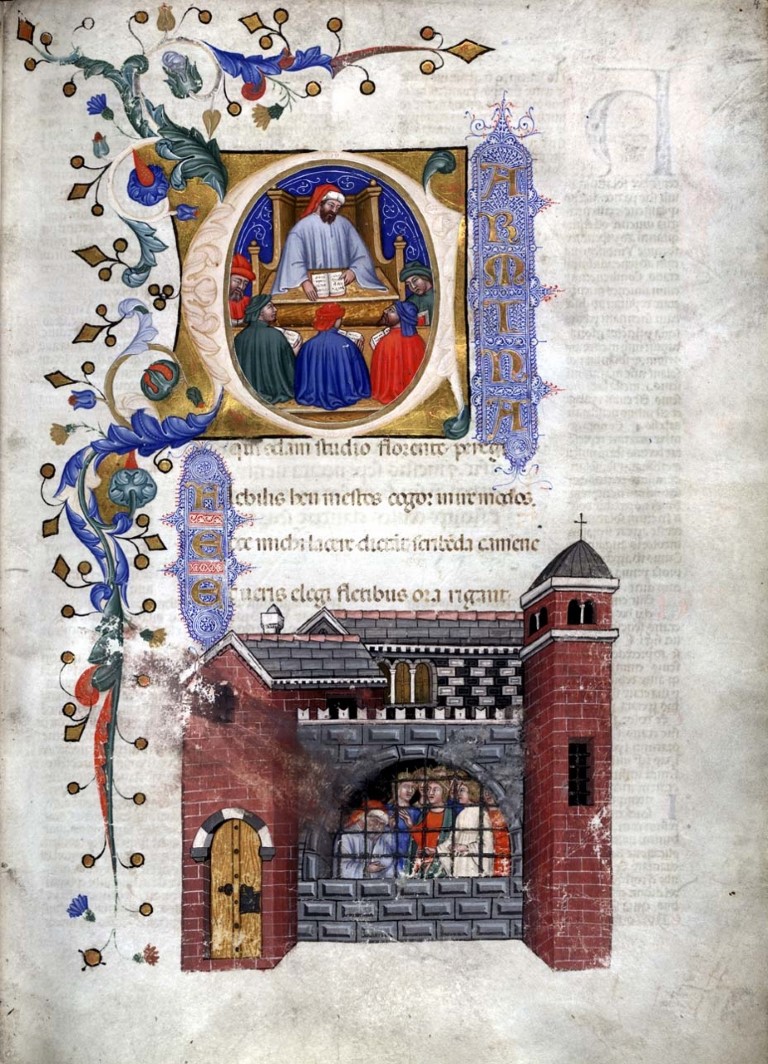 CARMINA
qui qdam studio florente peregi
Flebilis heu mestos cogor inire modos.
Ecce michi lacere dictāt scribēda camene
Et ueris elegi fletibus ora rigant